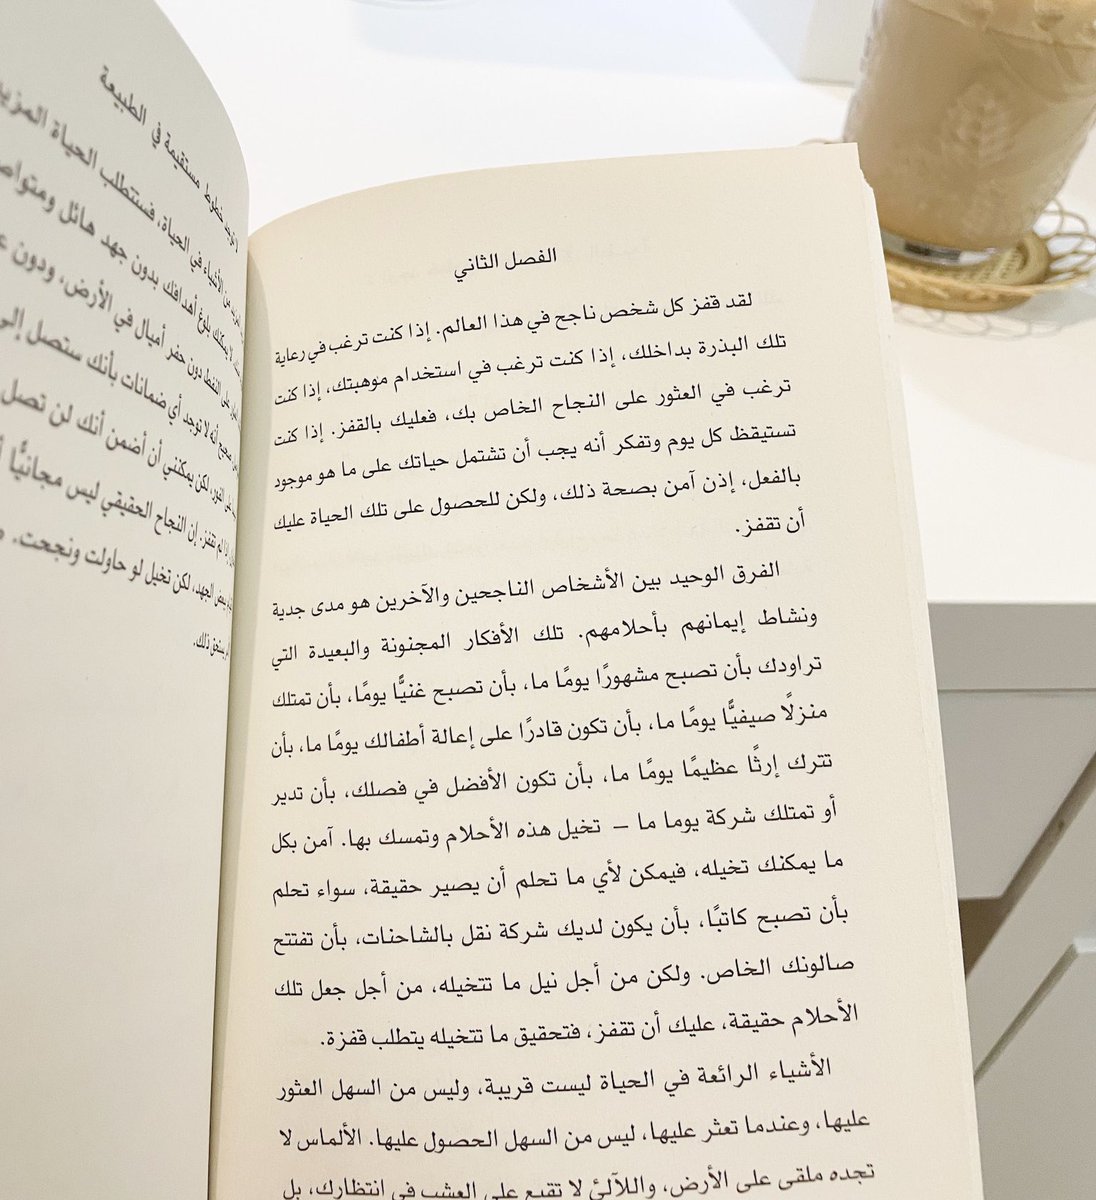 الفصل الثاني
لقد قفز كل شخص ناجح في هذا العالم. إذا كنت ترغب في رعاية
تلك البذرة بداخلك، إذا كنت ترغب في استخدام موهبتك، إذا كنت
ترغب في العثور على النجاح الخاص بك، فعليك بالقفز. إذا كنت
تستيقظ كل يوم وتفكر أنه يجب أن تشتمل حياتك على ما هو موجود
بالفعل، إذن آمن بصحة ذلك، ولكن للحصول على تلك الحياة عليك
أن تقفز.
الفرق الوحيد بين الأشخاص الناجحين والآخرين هو مدى جدية
ونشاط إيمانهم بأحلامهم. تلك الأفكار المجنونة والبعيدة التي
تراودك بأن تصبح مشهورًا يومًا ما، بأن تصبح غنيًّا يومًا، بأن تمتلك
منزلًا صيفيًّا يومًا ما، بأن تكون قادرًا على إعالة أطفالك يومًا ما، بأن
تترك إرثًا عظيمًا يومًا ما، بأن تكون الأفضل في فصلك، بأن تدير
أو تمتلك شركة يوما ما – تخيل هذه الأحلام وتمسك بها. آمن بكل
ما يمكنك تخيله، فيمكن لأي ما تحلم أن يصير حقيقة، سواء تحلم
بأن تصبح كاتبًا، بأن يكون لديك شركة نقل بالشاحنات، بأن تفتتح
صالونك الخاص. ولكن من أجل نيل ما تتخيله، من أجل جعل تلك
الأحلام حقيقة، عليك أن تقفز، فتحقيق ما تتخيله يتطلب قفزة.
الأشياء الرائعة في الحياة ليست قريبة، وليس من السهل العثور
عليها، وعندما تعثر عليها، ليس من السهل الحصول عليها. الألماس لا
تجده ملقى على الأرض، واللآلئ لا تقبع على العشب في انتظارك، بل
لا توجد خطوط مستقيمة في الطبيعة
من الأشياء في الحياة، فستتطلب الحياة المزيد
لا يمكنك بلوغ أهدافك بدون جهد هائل
على النفط دون حفر أميال في الأرض، ودون
صحيح أنه لا توجد أي ضمانات بأنك ستصل إلى
لكن يمكنني أن أضمن أنك لن تصل
إذا لم تقفز. إن النجاح الحقيقي ليس مجانيًّا
بعض الجهد، لكن تخيل لو حاولت ونجحت.
يستحق ذلك.